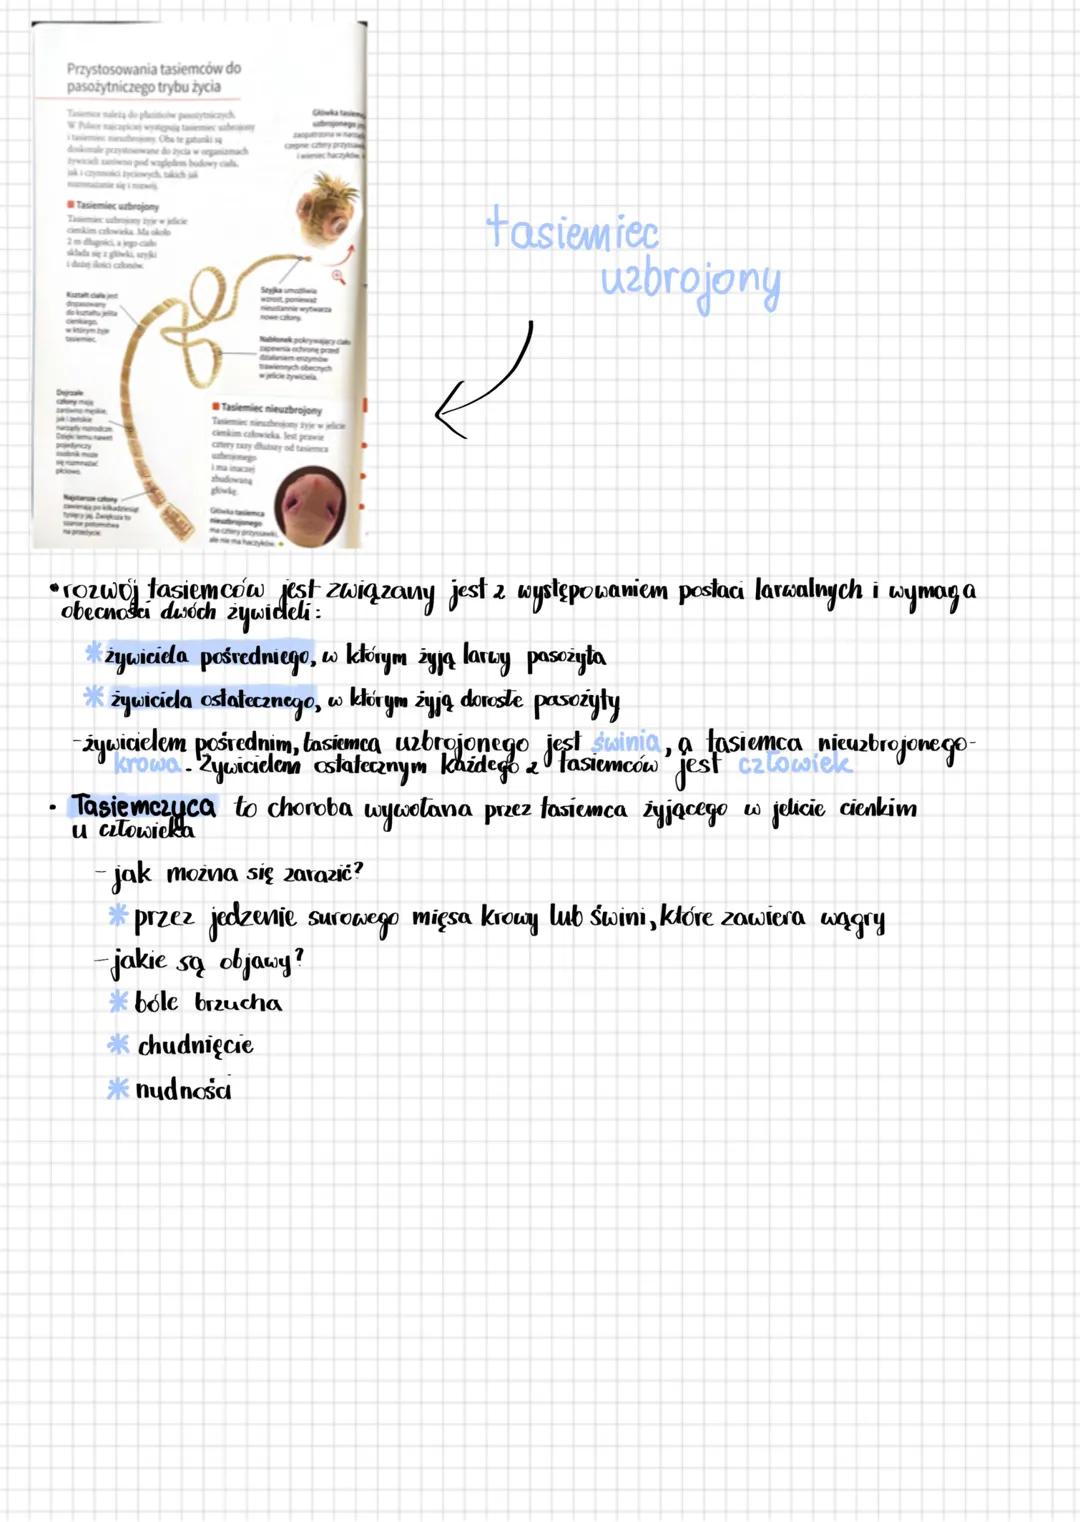 Przystosowania tasiemców do
pasożytniczego trybu życia
Tasiemce należą do płazińców pasożytniczych.
W Polsce najczęściej występują tasiemiec uzbrojony
i tasiemiec nieuzbrojony. Oba te gatunki są
doskonale przystosowane do życia w organizmach
żywicieli zarówno pod względem budowy ciała,
jak i czynności życiowych, takich jak
rozmnażanie się i rozwój.
Główka
uzbrojonego
zaopatrzona w
czepne: cztery
i wieniec haczyków
Tasiemiec uzbrojony
Tasiemiec uzbrojony żyje w jelicie
cienkim człowieka. Ma około
2 m długości, a jego ciało
składa się z główki, szyjki
i dużej ilości członów.
Kształt ciała jest
dopasowany
do kształtu jelita
cienkiego,
w którym żyje
tasiemiec.
Szyjka umożliwia
wzrost, ponieważ
nieustannie wytwarza
nowe człony.
Nabłonek pokrywający ciało
zapewnia ochronę przed
działaniem enzymów
trawiennych obecnych
w jelicie żywiciela.
Dojrzałe
człony mają
zarówno męskie,
jak i żeńskie
narządy rozrodcze.
Dzięki temu nawet
pojedynczy
osobnik może
się rozmnażać
płciowo.
Tasiemiec nieuzbrojony
Tasiemiec nieuzbrojony żyje w jelicie
cienkim człowieka. Jest prawie
cztery razy dłuższy od tasiemca
uzbrojonego
i ma inaczej
zbudowaną
główkę.
Najstarsze człony
zawierają po kilkadziesiąt
tysięcy jaj. Zwiększa to
szanse potomstwa
na przeżycie.
Główka tasiemca
nieuzbrojonego
ma cztery przyssawki,
ale nie ma haczyków.
tasiemiec
uzbrojony
•rozwój tasiemców jest związany jest z występowaniem postaci larwalnych i wymaga
obecności dwóch żywicieli:
* żywiciela pośredniego, w którym żyją larwy pasożyta
* żywiciela ostatecznego, w którym żyją dorosłe pasożyty
-żywicielem pośrednim, tasiemca uzbrojonego jest świnia, a tasiemca nieuzbrojonego-
krowa. Żywicielem ostatecznym każdego z tasiemców jest człowiek
• Tasiemczyca to choroba wywołana przez tasiemca żyjącego w jelicie cienkim
u człowieka
- jak można się zarazić?
* przez jedzenie surowego mięsa krowy lub świni, które zawiera wągry
- jakie są objawy?
* bóle brzucha
* chudnięcie
* nudności